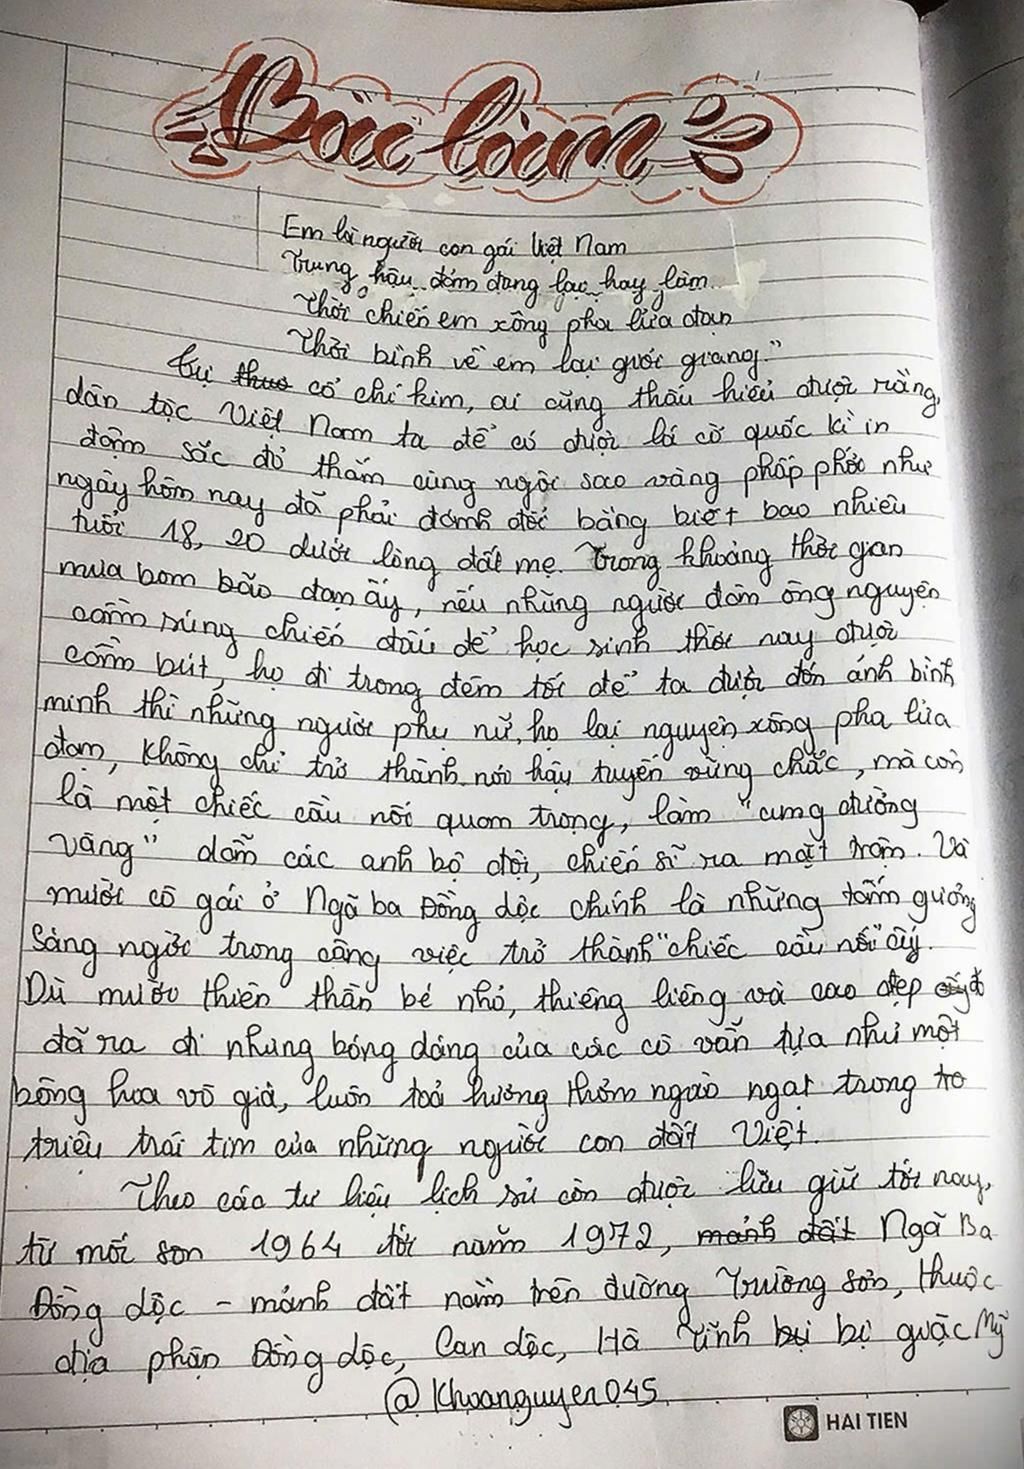 Bài làm
Em là người con gái Việt Nam
Trung hậu đảm đang lại hay làm
Thời chiến em xông pha lửa đạn
Thời bình về em lại guốc giang."
Cụ thuo cổ chí kim, ai cũng thấu hiểu được rằng,
dân tộc Việt Nam ta để có được lá cờ quốc kì in
đậm sắc đỏ thắm cùng ngôi sao vàng phấp phới như
ngày hôm nay đã phải đánh đổi bằng biết bao nhiêu
tuổi 18, 20 dưới lòng đất mẹ. Trong khoảng thời gian
mưa bom bão đạn ấy, nếu những người đàn ông nguyện
cầm súng chiến đấu để học sinh thời nay được
cầm bút, họ đi trong đêm tối để ta được đón ánh bình
minh thì những người phụ nữ, họ lại nguyện xông pha lửa
đạn, không chỉ trở thành nơi hậu tuyến vững chắc, mà còn
là một chiếc cầu nối quan trọng, làm "cung đường
vàng" dẫn các anh bộ đội, chiến sĩ ra mặt trận. Và
mười cô gái ở Ngã ba Đồng Lộc chính là những tấm gương
sáng ngời trong công việc trở thành "chiếc cầu nối" ấy.
Dù mười thiên thần bé nhỏ, thiêng liêng và cao đẹp
đã ra đi nhưng bóng dáng của các cô vẫn tựa như một
bông hoa vô giá, luôn toả hương thơm ngào ngạt trong to
triệu trái tim của những người con đất Việt.
Theo các tư liệu lịch sử còn được lưu giữ tới nay,
từ mới son 1964 tới năm 1972, mảnh đất Ngã Ba
Đồng Lộc - mảnh đất nằm trên đường Trường Sơn, thuộc
địa phận Đồng Lộc, Can Lộc, Hà Tĩnh bị giặc Mỹ
@Khoanguyen045
HAI TIEN